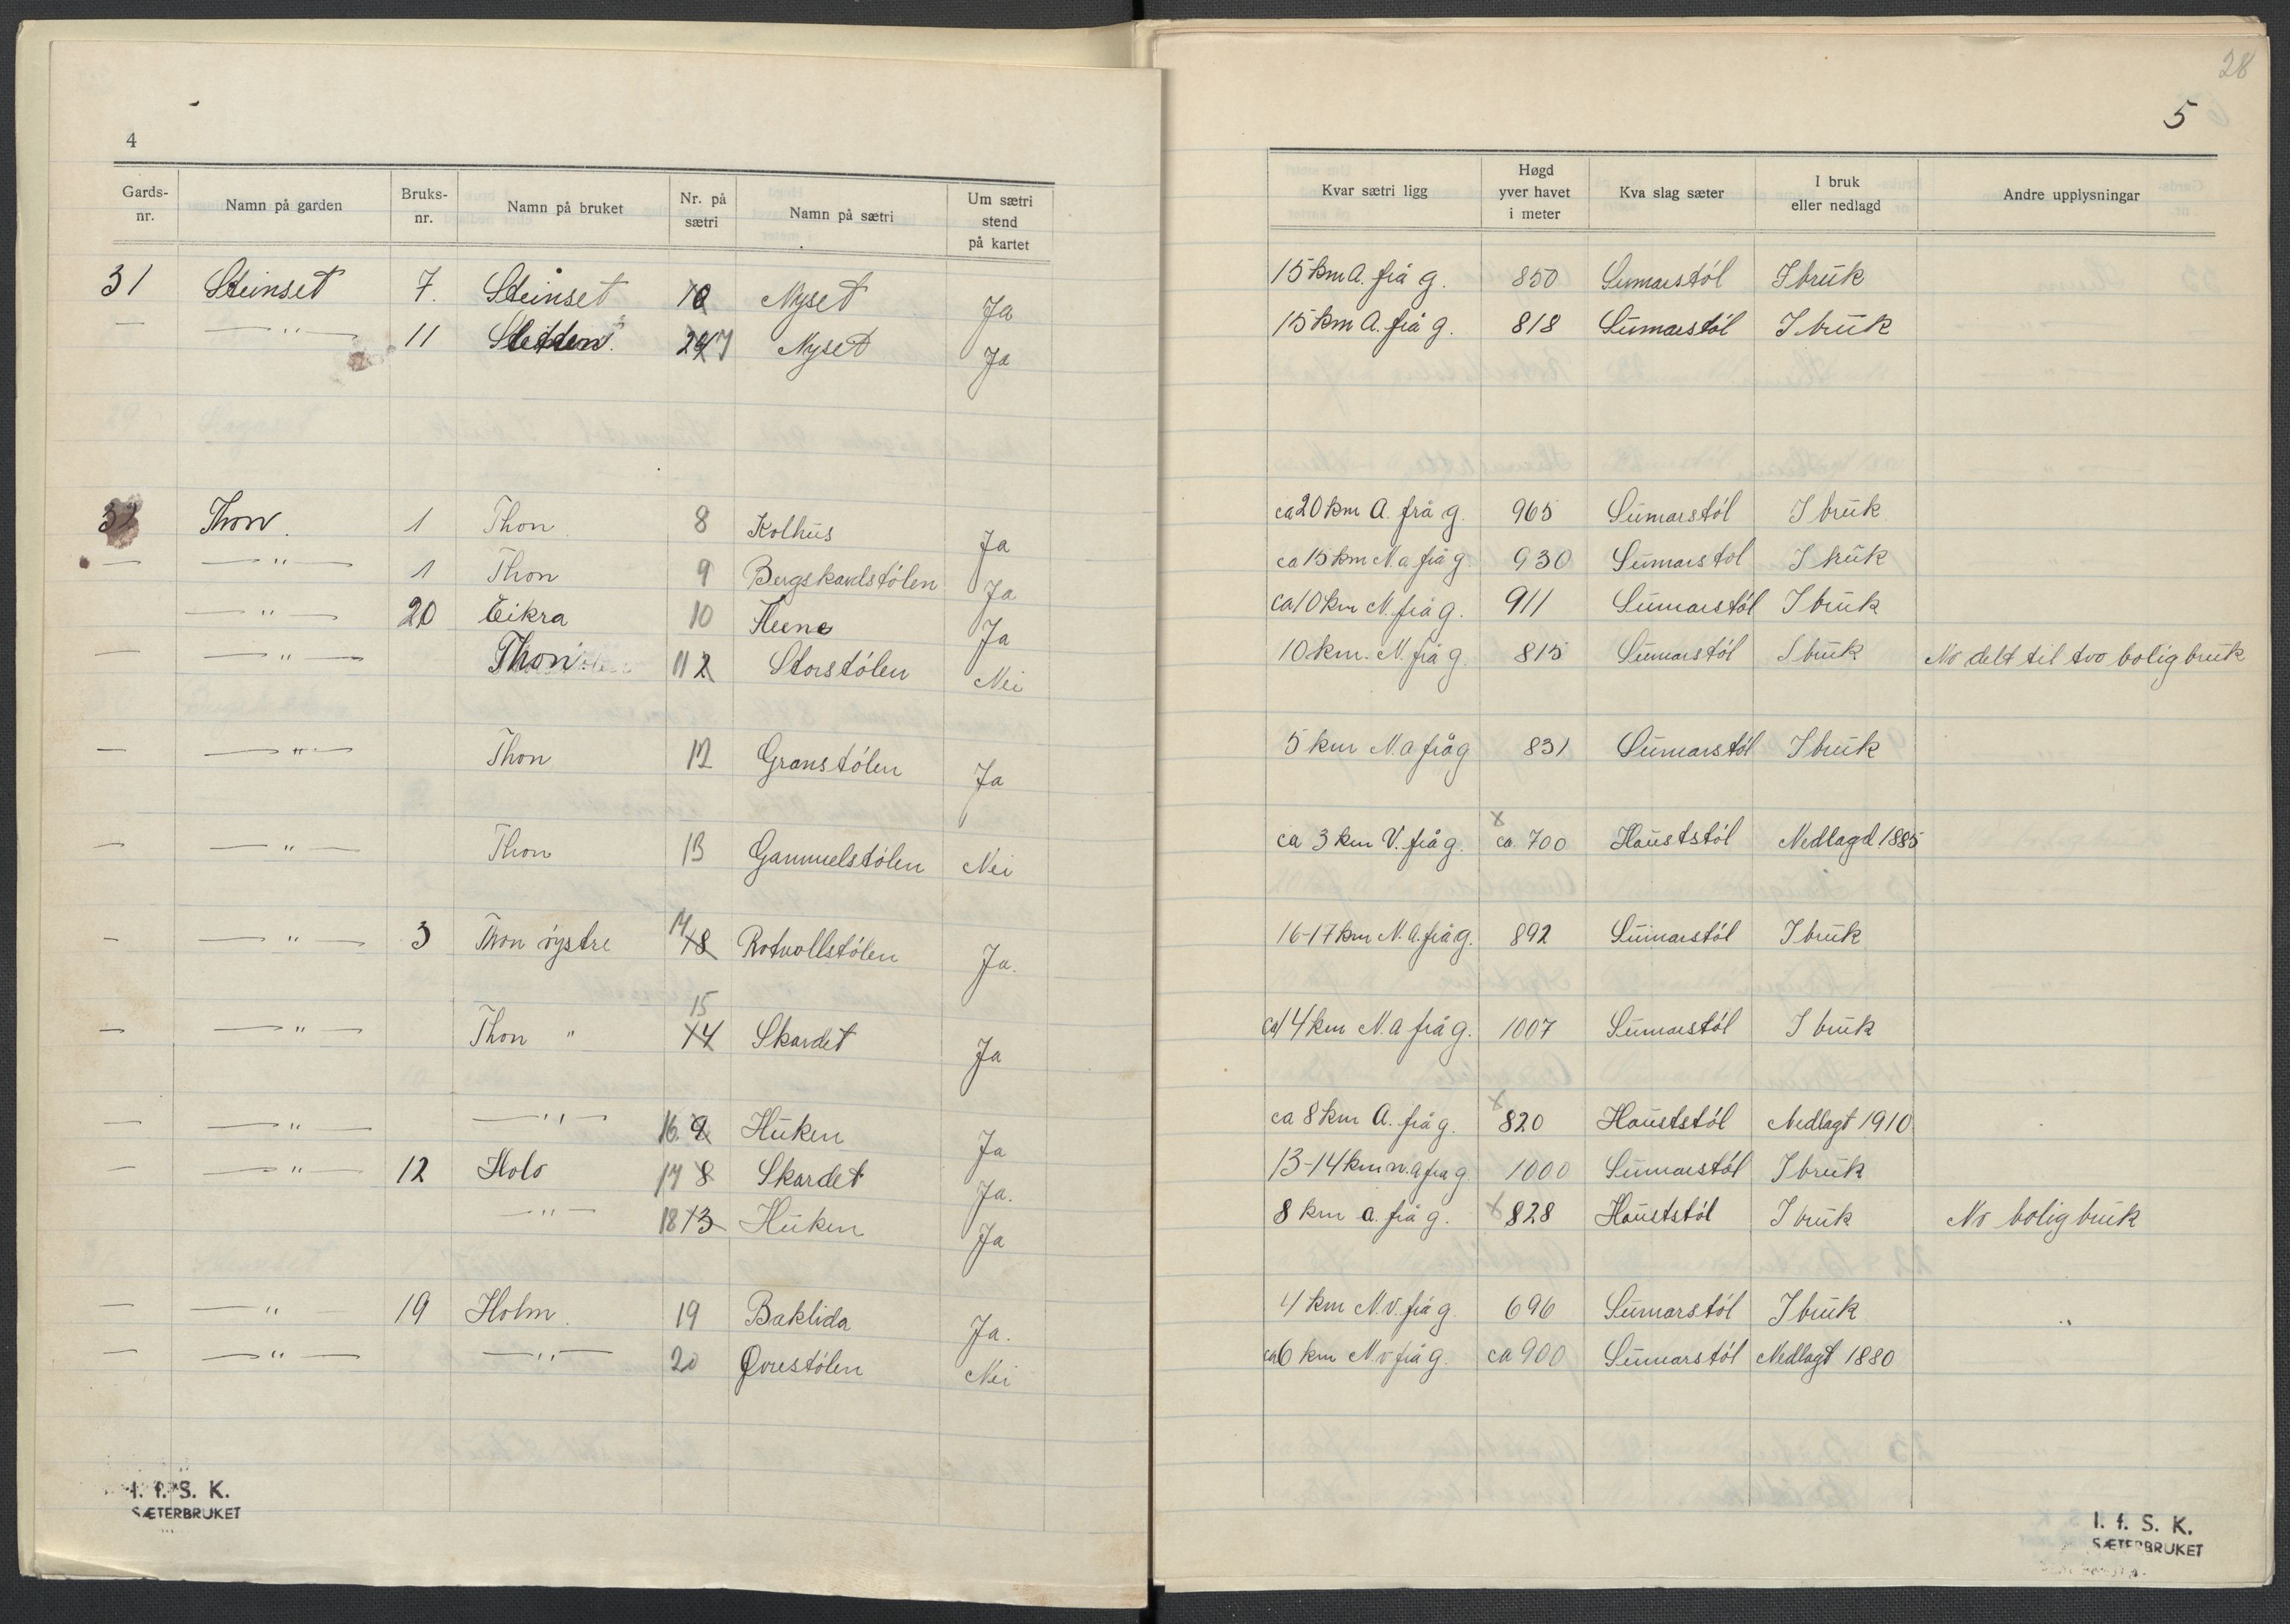 4
Gards-nr. Namn på garden Bruks-nr. Namn på bruket Nr. på sætri Namn på sætri Um sætri stend på kartet
31 Steinset 7. Steinset Nyset Ja
— — " — 11 Sletten. Nyset Ja
32 Thon. 1 Thon 8 Kolhus Ja
— — " — 1 Thon 9 Bergskardstólen Ja
— " — 20 Eikra 10 Heene Ja
— — " — Thon 11 2 Storstólen Nei
— — " — Thon 12 Granstólen Ja
— — " — Thon 13 Gammelstólen Nei
— — " — 3 Thon øystre 14 18 Rotvollstólen Ja.
— — " — Thon " 15 14 Skardet Ja
— — " — — " — 16. 9 Huken Ja
— — " — 12 Holo 17 8 Skardet Ja.
— " — 18 13 Huken Ja
— — " — 19 Holm. 19 Baklida Ja.
— — " — — " — 20 Øvrestólen Nei
I. f. S. K.
SÆTERBRUKET
28
5
Kvar sætri ligg Høgd yver havet i meter Kva slag sæter I bruk eller nedlagd Andre upplysningar
15 km A. frå g. 850 Sumarstól I bruk
15 km A. frå g. 818 Sumarstól I bruk
ca 20 km A. frå g. 965 Sumarstól I bruk
ca 15 km N. a frå g 930 Sumarstol I bruk
ca 10 km N. frå g. 911 Sumarstól I bruk
10 km. N. frå g. 815 Sumarstól I bruk No delt til tvo bolig bruk
5 km N. a frå g 831 Sumarstól I bruk
ca 3 km V. frå g. x ca. 700 Hauststól Nedlagd 1885
16-17 km N. A. frå g. 892 Sumarstól I bruk
ca 14 km N. a frå g. 1007 Sumarstól I bruk
ca 8 km A. frå g. x 820 Hauststól Nedlagt 1910
13-14 km n. a fra g. 1000 Sumarstól I bruk
8 km a. frå g. x 828 Hauststól I bruk No bolig bruk
4 km N. v. frå g. 696 Sumarstól I bruk "
ca 6 km N. v frå g. ca 900 Sumarstól Nedlagt 1880
I. f. S. K.
SÆTERBRUKET